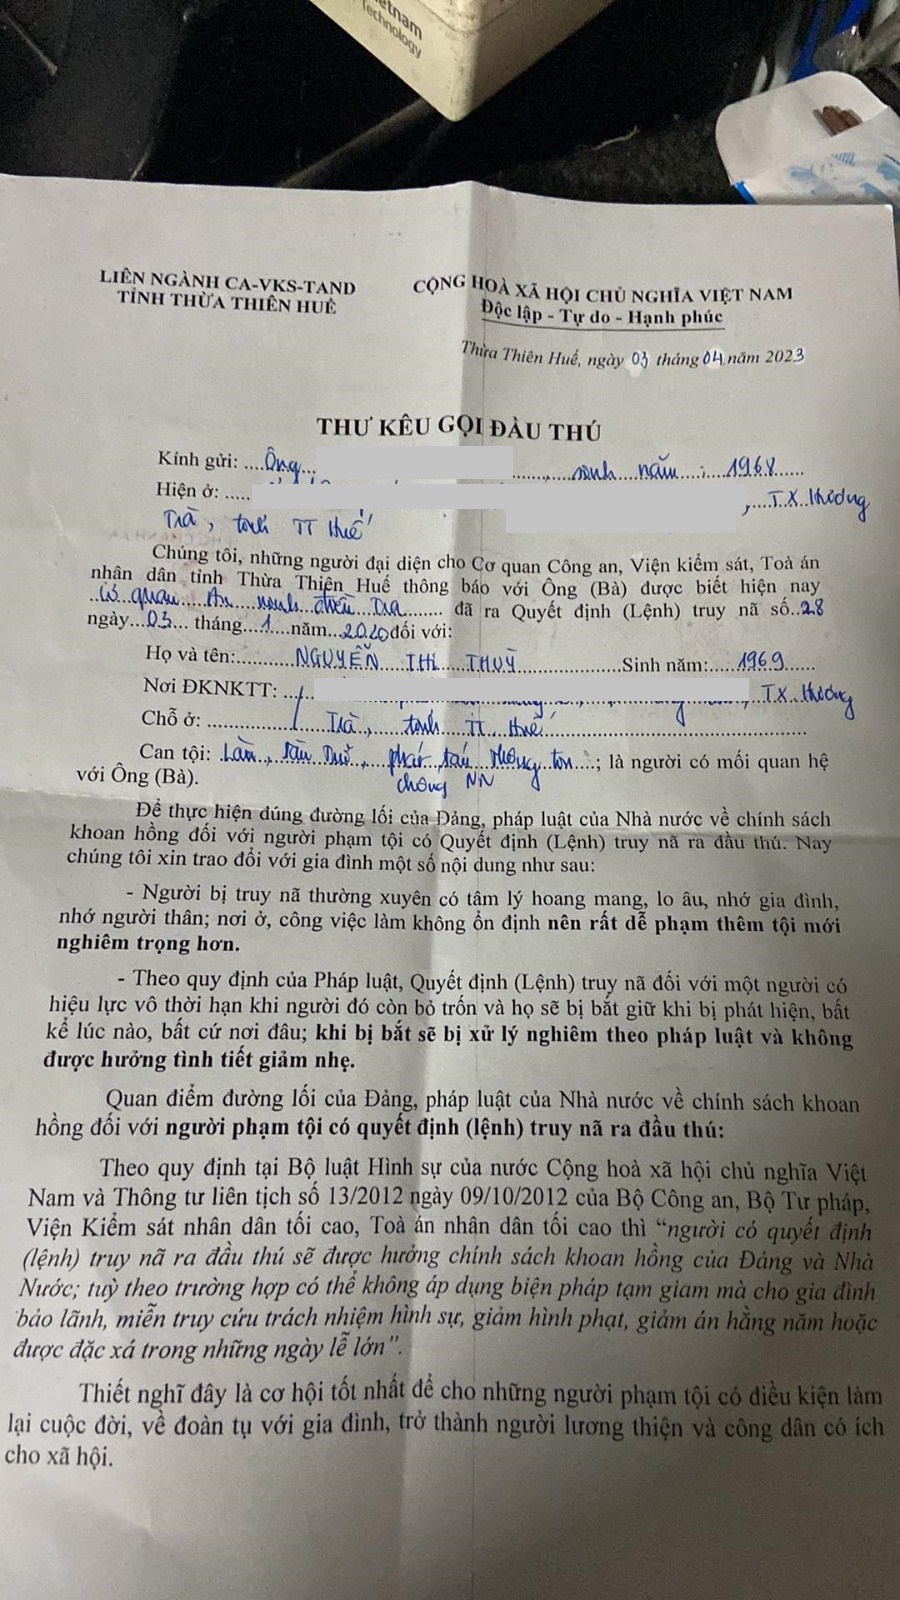 etnam
Technology
LIÊN NGÀNH CA-VKS-TAND
TỈNH THỪA THIÊN HUẾ
CỘNG HOÀ XÃ HỘI CHỦ NGHĨA VIỆT NAM
Độc lập - Tự do - Hạnh phúc
Thừa Thiên Huế, ngày 03 tháng 04 năm 2023
THƯ KÊU GỌI ĐẦU THÚ
Kính gửi: ....Ông... ..., sinh năm : 1968
Hiện ở: ..... , T.X Hương
Trà, tỉnh TT Huế
Chúng tôi, những người đại diện cho Cơ quan Công an, Viện kiểm sát, Toà án
nhân dân tỉnh Thừa Thiên Huế thông báo với Ông (Bà) được biết hiện nay
Cơ quan An ninh điều tra đã ra Quyết định (Lệnh) truy nã số..28
ngày...03... tháng...1...năm...2020 đối với:
Họ và tên:..........NGUYỄN THỊ THUỶ..........Sinh năm:....1969
Nơi ĐKNKTT: , TX. Hương
Chỗ ở: Trà, tỉnh TT Huế
Can tội: Làm, tàng trữ, phát tán thông tin ; là người có mối quan hệ
chống NN
với Ông (Bà).
Để thực hiện đúng đường lối của Đảng, pháp luật của Nhà nước về chính sách
khoan hồng đối với người phạm tội có Quyết định (Lệnh) truy nã ra đầu thú. Nay
chúng tôi xin trao đổi với gia đình một số nội dung như sau:
- Người bị truy nã thường xuyên có tâm lý hoang mang, lo âu, nhớ gia đình,
nhớ người thân; nơi ở, công việc làm không ổn định nên rất dễ phạm thêm tội mới
nghiêm trọng hơn.
- Theo quy định của Pháp luật, Quyết định (Lệnh) truy nã đối với một người có
hiệu lực vô thời hạn khi người đó còn bỏ trốn và họ sẽ bị bắt giữ khi bị phát hiện, bất
kể lúc nào, bất cứ nơi đâu; khi bị bắt sẽ bị xử lý nghiêm theo pháp luật và không
được hưởng tình tiết giảm nhẹ.
Quan điểm đường lối của Đảng, pháp luật của Nhà nước về chính sách khoan
hồng đối với người phạm tội có quyết định (lệnh) truy nã ra đầu thú:
Theo quy định tại Bộ luật Hình sự của nước Cộng hoà xã hội chủ nghĩa Việt
Nam và Thông tư liên tịch số 13/2012 ngày 09/10/2012 của Bộ Công an, Bộ Tư pháp,
Viện Kiểm sát nhân dân tối cao, Toà án nhân dân tối cao thì "người có quyết định
(lệnh) truy nã ra đầu thú sẽ được hưởng chính sách khoan hồng của Đảng và Nhà
Nước; tuỳ theo trường hợp có thể không áp dụng biện pháp tạm giam mà cho gia đình
bảo lãnh, miễn truy cứu trách nhiệm hình sự, giảm hình phạt, giảm án hằng năm hoặc
được đặc xá trong những ngày lễ lớn".
Thiết nghĩ đây là cơ hội tốt nhất để cho những người phạm tội có điều kiện làm
lại cuộc đời, về đoàn tụ với gia đình, trở thành người lương thiện và công dân có ích
cho xã hội.